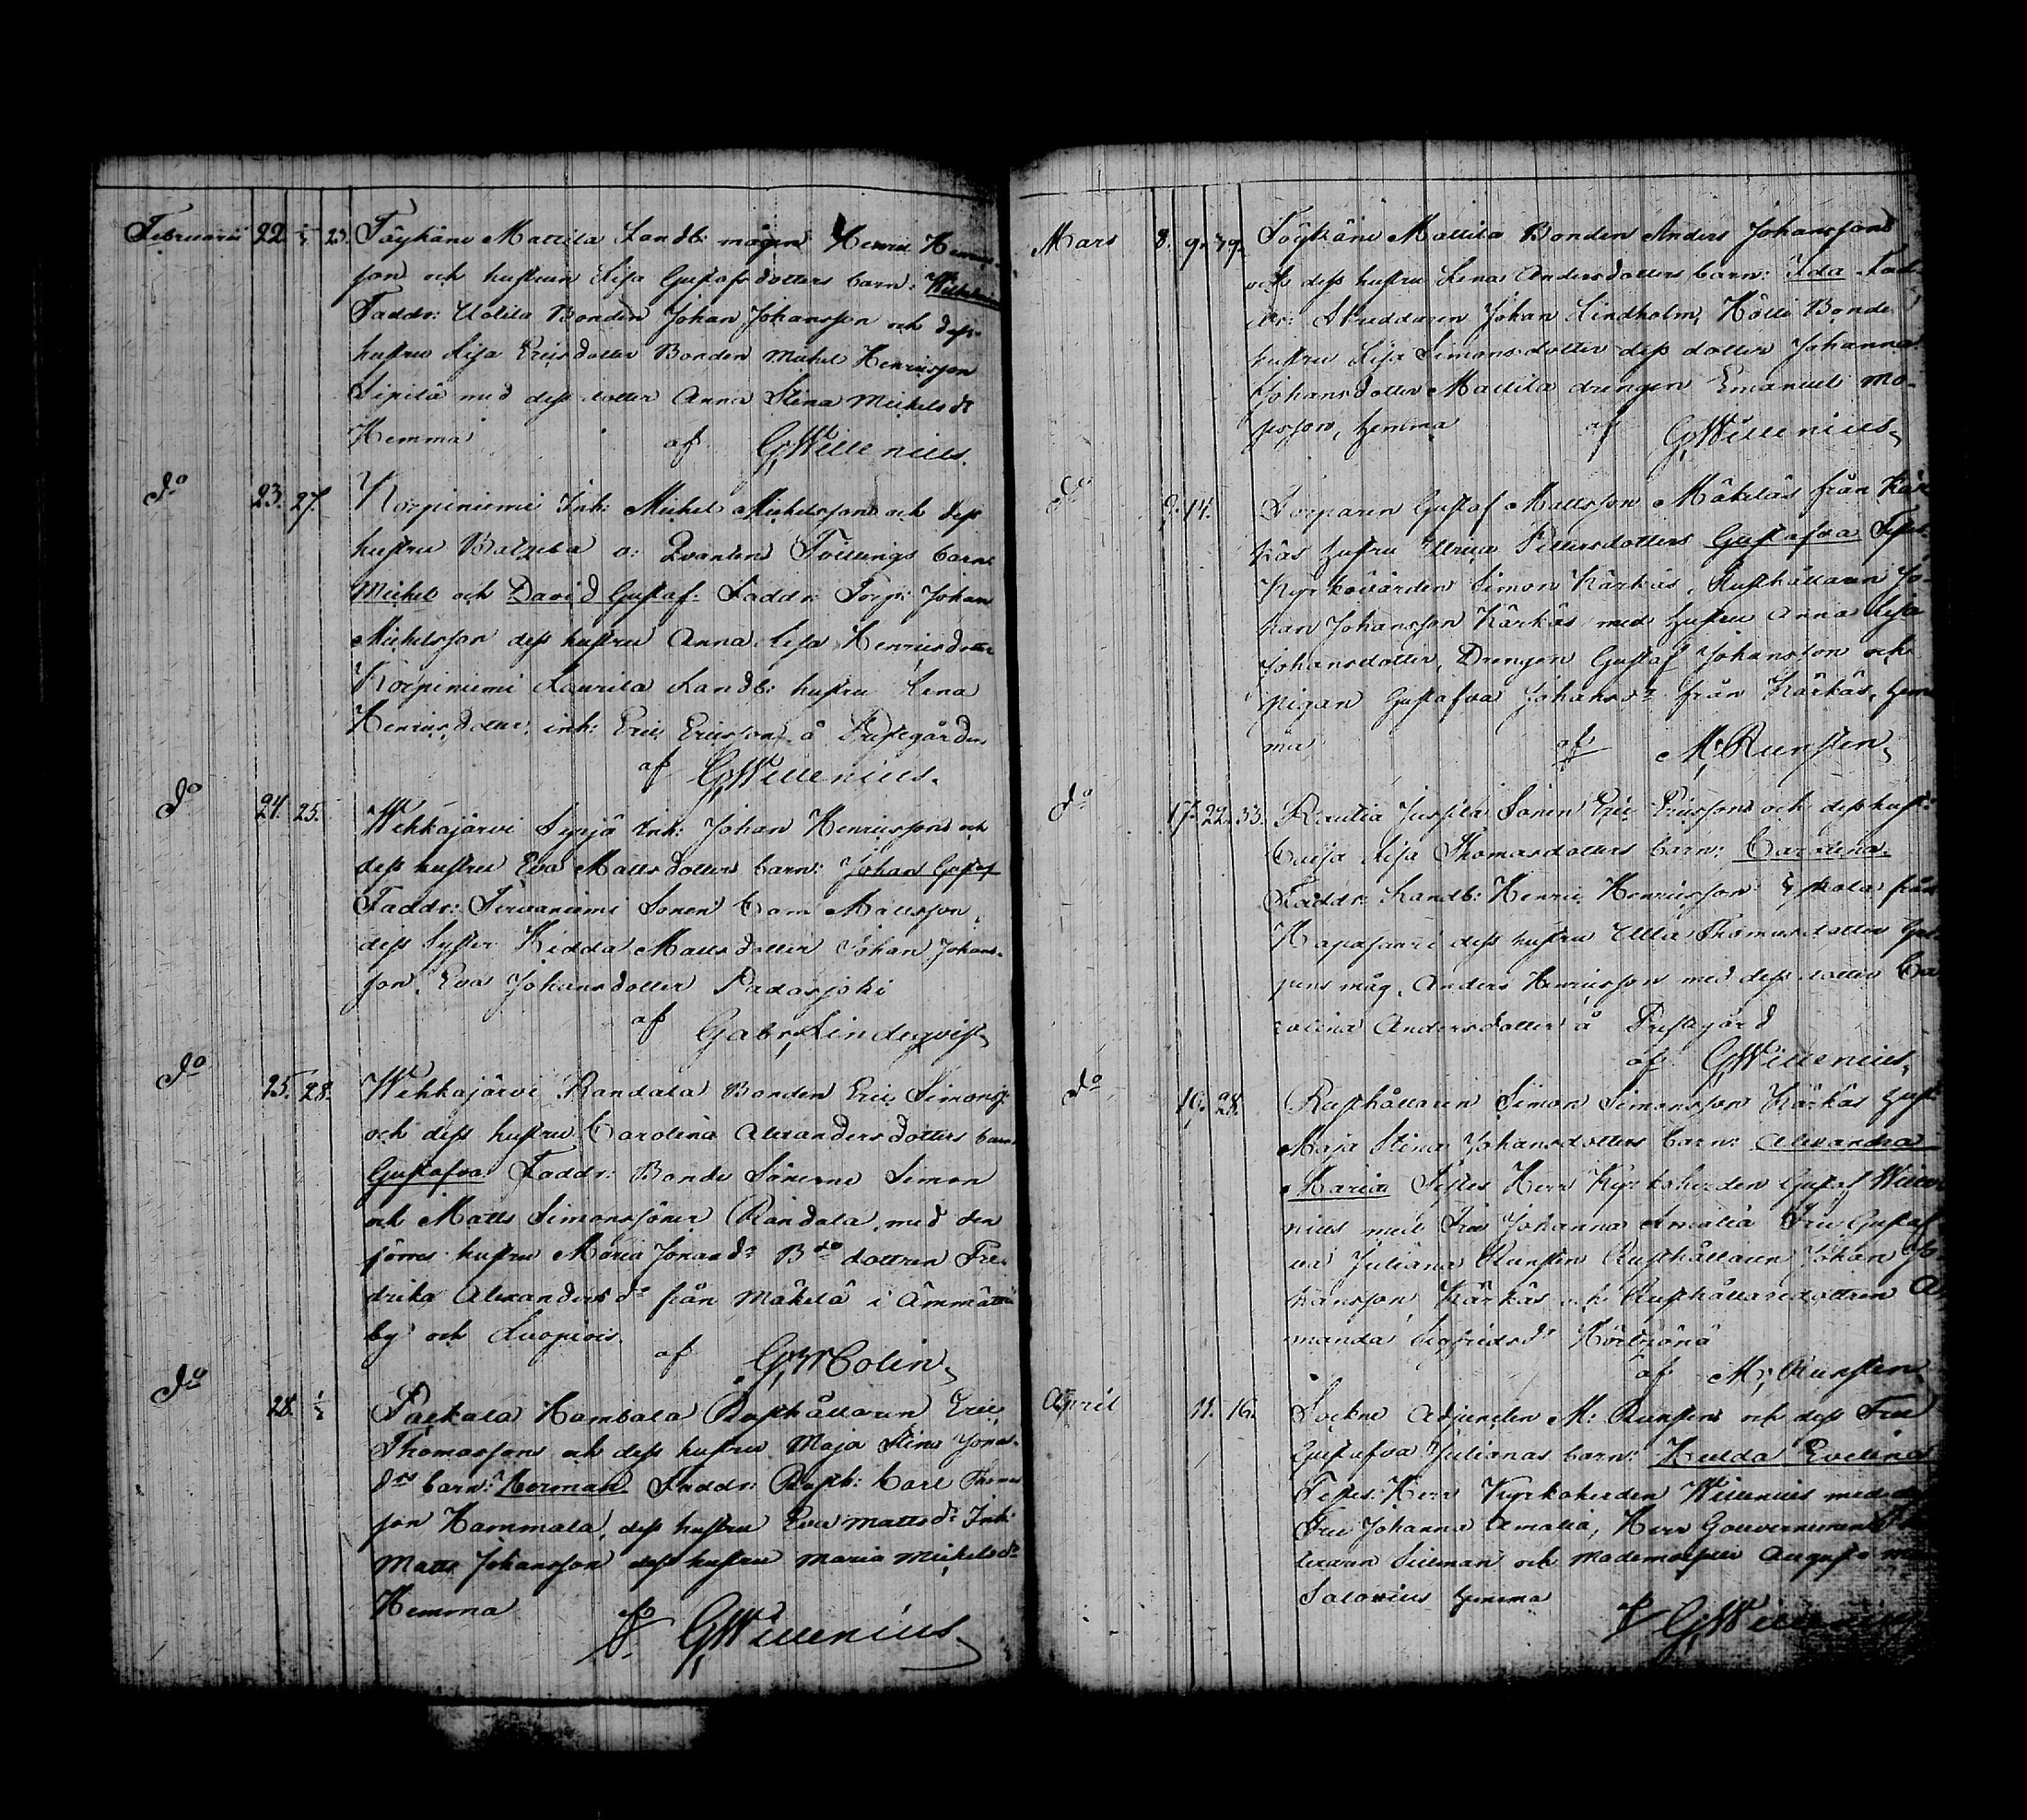 Februarii 22. 1/3 23. Töykäne Mattila Landb: mågen Henric Henrics-
son och hustrun Lisa Gustafsdotters barn: Wilhelmina
Faddr: Uotila Bonden Johan Johansson och dess
hustru Lisa Ericsdotter Bonden Michel Henricsson
Sipilä med dess dotter Anna Stina Michelsdr
Hemma af GWillenius.
do 23. 27. Korpiniemi Inh: Michel Michelssons och dess
hustru Batseba o: Qvantens Tvillings barn
Michel och David Gustaf. Faddr: Torp: Johan
Michelsson dess hustru Anna Lisa Henricsdotter
Korpiniemi Laurila Landb: hustru Lena
Henricsdotter, inh: Eric Ericsson å Prestgården
af GWillenius.
do 24. 25. Wehkajärvi Inh: Johan Henricssons och
dess hustru Eva Mattsdotters barn: Johan Gustaf
Faddr: Sonen Mattsson,
dess Syster Hedda Mattsdotter Johan Johans-
son, Eva Johansdotter Padasjoki
af Gabr. Lindeqvist
do 25. 28. Wehkajärvi Randala Bonden Eric Simonss:
och dess hustru Carolina Alexandersdotters barn
Gustafva Faddr: Bonde Sönerne Simon
och Matts Simonssöner Randala, med den
förres hustru Maria Jonasdr Bdo dottren Fre-
drika Alexandersdr från Mäkelä i Ämmätsä
by och Luopiois.
af GWColin
do 28. 1/3 Paekala Hambala Rusthållaren Eric
Thomassons och dess hustru Maja Stina Jonas-
drs barn: Herman. Faddr: Rusth: Carl Thomas
son Hammala, dess hustru Eva Mattsdr Inh:
Matts Johansson dess hustru Maria Michelsdr
Hemma af GWillenius
Mars 8. 9. 79. Töykäne Mattila Bonden Anders Johanssons
och dess hustru Lena Andersdotters barn: Ida Fad-
dr: Skräddaren Johan Lindholm, Hölli Bonde
hustru Lisa Simonsdotter dess dotter Johanna
Johansdotter Mattila drengen Emanuel Mo-
sesson, hemma af GWillenius
do 9. 14. Torparen Gustaf Mattsson Mäkeläs från Kär-
käs hustru Ulrica Pettersdotters Gustafva Test.
Kyrkovärden Simon Kärkäs, Rusthållaren Jo-
han Johansson Kärkäs med hustru Anna Lisa
Johansdotter, Drengen Gustaf Johansson och
pigan Gustafva Johansdr från Kärkäs, hem-
ma af M. Runsten
do 17. 22. 33. Rautia Jussila Sonen Eric Ericssons och dess hustr:
Caisa Lisa Thomasdotters barn: Carolina.
Faddr: Landb: Henric Henricsson från
Hapasaari dess hustru Ulla Thomasdotter
måg, Anders Henricsson med dess dotter Ca
rolina Andersdotter å Prestgård
af GWillenius
do 19. 28. Rusthållaren Simon Simonssons Kärkäs hustr:
Maja Stina Johansdotters barn: Alexandra
Maria Testes Herr Kyrkoherden Gustaf Wille
nius med Fru Johanna Amalia Fru Gustaf
va Juliana Runsten Rusthållaren Johan Jo-
hansson Kärkäs och Rusthållaredottren A
manda Sigfridsdr
af M. Runsten
April 11. 16. Sockne Adjuncten M: Runstens och dess Fru
Gustafva Julianas barn: Hulda Evelina
Testes: Herr Kyrkoherden Willenius med
Fru Johanna Amalia, Herr Gouvernements
Sillman och Mademoiselle Augusta
Salovius hemma
af GWillenius